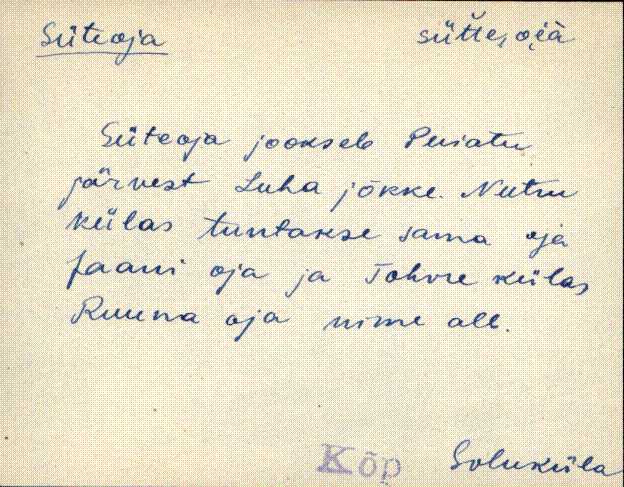 Süteoja sütte, oi̯a
Süteoja jookseb Puiatu
järvest Luha jõkke. Nutru
külas tuntakse sama oja
Jaani oja ja Tohvre külas
Ruuna oja nime all.
Kõp Soluküla